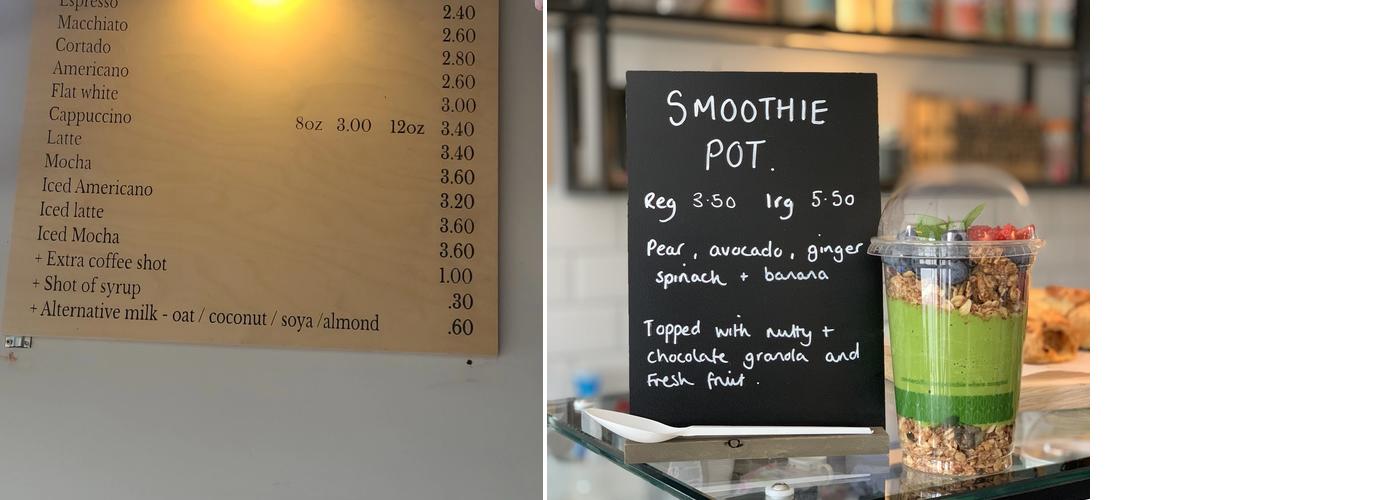 Espresso 2.40
Macchiato 2.60
Cortado 2.80
Americano 2.60
Flat white 3.00
Cappuccino 8oz 3.00 12oz 3.40
Latte 3.40
Mocha 3.60
Iced Americano 3.20
Iced latte 3.60
Iced Mocha 3.60
+ Extra coffee shot 1.00
+ Shot of syrup .30
+ Alternative milk - oat / coconut / soya /almond .60
SMOOTHIE
POT.
Reg 3.50 lrg 5.50
Pear, avocado, ginger
spinach + banana
Topped with nutty +
chocolate granola and
Fresh fruit.